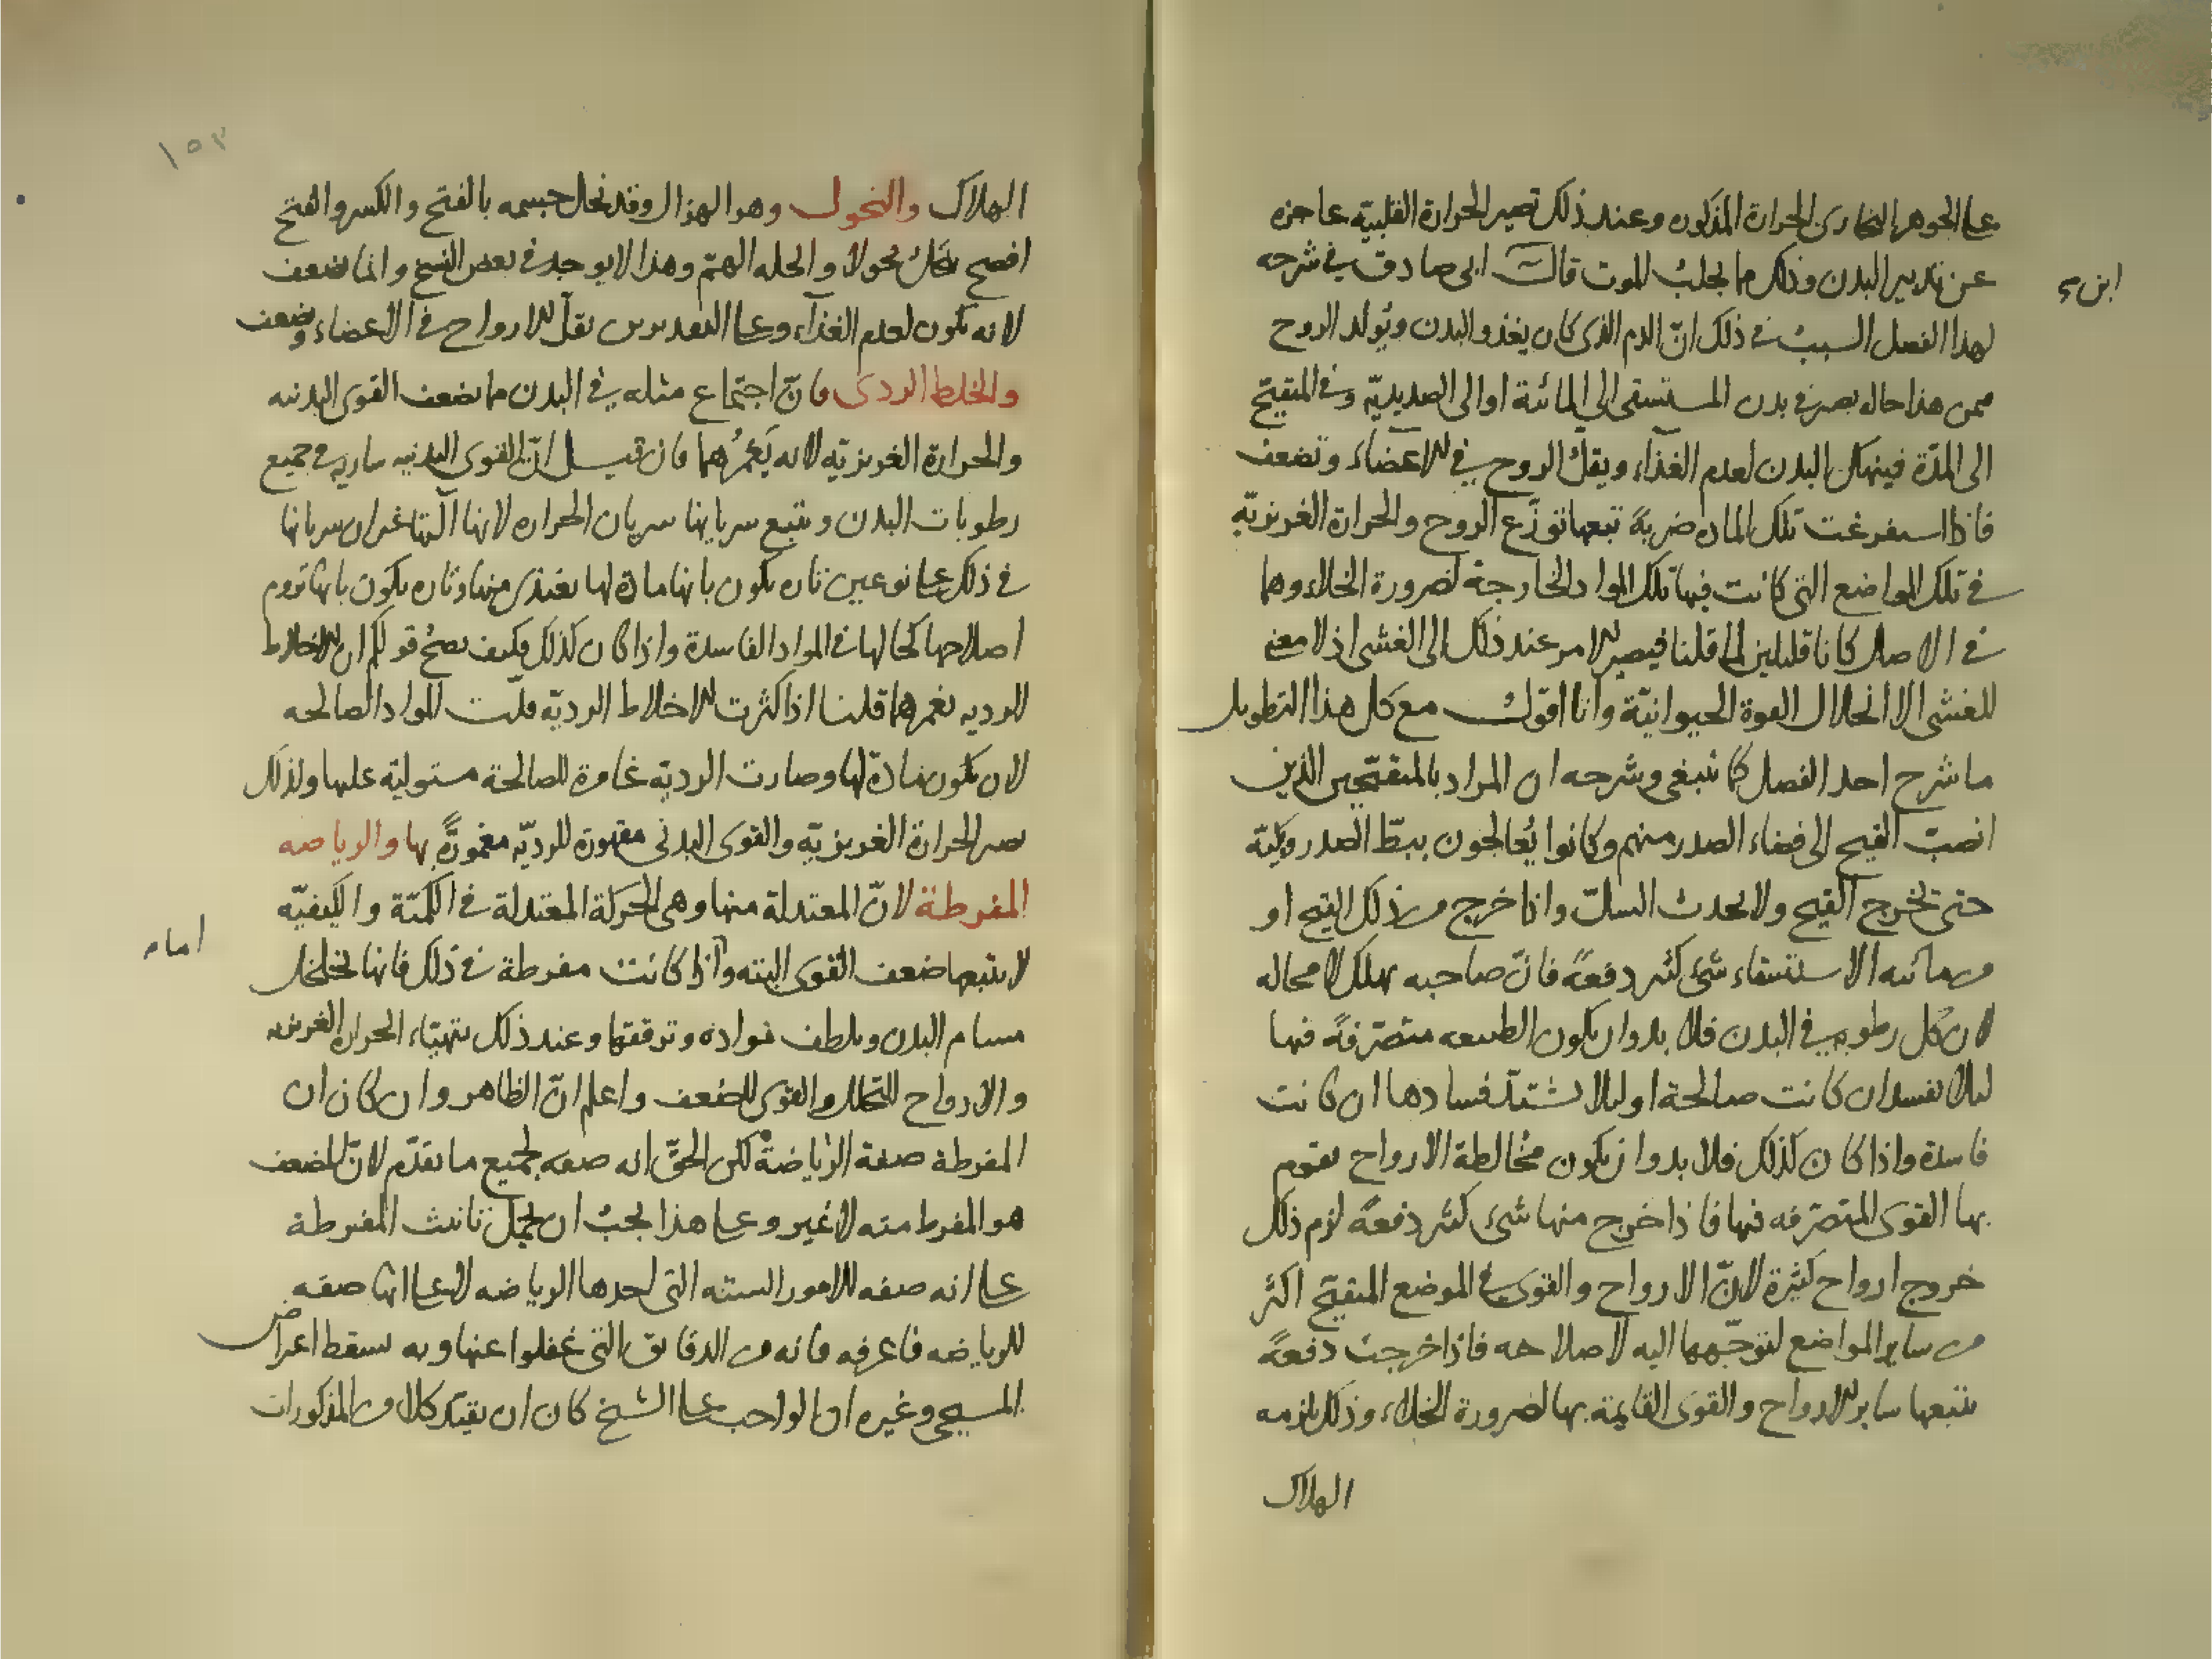 على الجوهر البخارى الحرارة المذكوره وعند ذلك تصير الحرارة القلبيّة عاجزه
عن تدبير البدن وذلك مما يجلبُ الموت قال ابى صادق فى شرحه
ابن
لهذا الفصل السببُ فى ذلك انّ الدم الذى كان يغذو البدن ويُولد الروح
ممن هذا حاله يصير فى بدن المستسقى الى المائتة او الى الصديديّة وفى المتقيّح
الى المدّة فينهك البدن لعدم الغذآء ويقلّ الروح فى الاعضآء وتضعف
فاذا استفرغت تلك المادة ضربةً تبعها توزّع الروح والحرارة الغريزيّة
فى تلك المواضع التى كانت فيها تلك المواد الخارجة لضرورة الخلاء وهما
فى الاصل كانا قليلين لما قلنا فيصير الامر عند ذلك الى الغشى اذ لا معنى
للغشى الا انحلال القوة الحيوانيّة وانا اقول مع كل هذا التطويل
ما شرح احد الفصل كما ينبغى وشرحه ان المراد بالمتقيّحين الذين
انصبّ القيح الى فضاء الصدر منهم وكانوا يُعالجون ببطّ الصدر وبكيّه
حتى يخرج القيح ولا يحدث السلّ واذا خرج من ذلك القيح او
من مائيه الاستسقاء شئ كثير دفعةً فانّ صاحبه يهلك لا محاله
لان كل رطوبه فى البدن فلا بد وان يكون الطبيعه متصرّفةً فيها
ليلا تفسد ان كانت صالحة او ليلا يشتدّ فسادها ان كانت
فاسدة واذا كان كذلك فلا بد وان يكون مخالطة الارواح تقوم
بها القوى المتصرّفه فيها فاذا خرج منها شئ كثير دفعةً لزم ذلك
خروج ارواح كثيرة لانّ الارواح والقوى فى الموضع المتقيّح اكثر
من ساير المواضع لتوجّهها اليه لاصلاحه فاذا خرجت دفعةً
يتبعها ساير الارواح والقوى القايمة بها لضرورة الخلاء وذلك يلزمه
الهلاك
١٥٣
الهلاك والنحول وهو الهزال وقد نحل جسمه بالفتح والكسر والفتح
افصح نحولا الهمّ وهذا لا يوجد فى بعض النسخ وانما يضعف
لانه يكون لعدم الغذآء وعلى التقديرين تقلّ الارواح فى الاعضاء وتضعف
والخلط الردى فانّ اجتماع مثله فى البدن مما يضعف القوى البدنيه
والحرارة الغريزيّه لانه يَغمُرُهما فان قيل انّ القوى البدنيه ساريه فى جميع
رطوبات البدن ويتبع سريانها سريان الحراره لانها آلتها غير ان سريانها
فى ذلك على نوعين تاره يكون بانها مادة لها تغتذى منها وتاره يكون بانها تروم
اصلاحها كحالها فى المواد الفاسدة واذا كان كذلك فكيف يصحُ قولكم ان الاخلاط
الرديه تغمرهما قلنا اذا كثرت الاخلاط الرديّه قلّت المواد الصالحه
لان تكون مادة لها وصارت الرديّه غامرة للصالحة مستولية عليها ولذلك
تصير الحرارة الغريزيّه والقوى البدنى مقهورة للرديّه مغمورةً بها والرياضه
المفرطة لانّ المعتدلة منها وهى الحركة المعتدلة فى الكميّة والكيفيّه
لا يتبعها ضعف القوى البته واذا كانت مفرطة فى ذلك فانها تخلخل
امام
مسام البدن ويلطف مواده وترققها وعند ذلك يتهيّاء الحرارة الغريزيه
والارواح للتحلل والقوى للضعف واعلم انّ الظاهر وان كان ان
المفرطة صفة الرياضة لكن الحقّ انه صفه لجميع ما تقدّم لانّ المضعف
هو المفرط منه لا غير وعلى هذا يجبُ ان يحمل تانيث المفرطة
على انه صفه للامور الستّه التى احدها الرياضه لا على انها صفه
للرياضه فاعرفه فانه من الدقايق التى غفلوا عنها وبه يسقط اعتراض
المسيحى وغيره ان الواجب على الشيخ كان ان يقيّد كلا من المذكورات